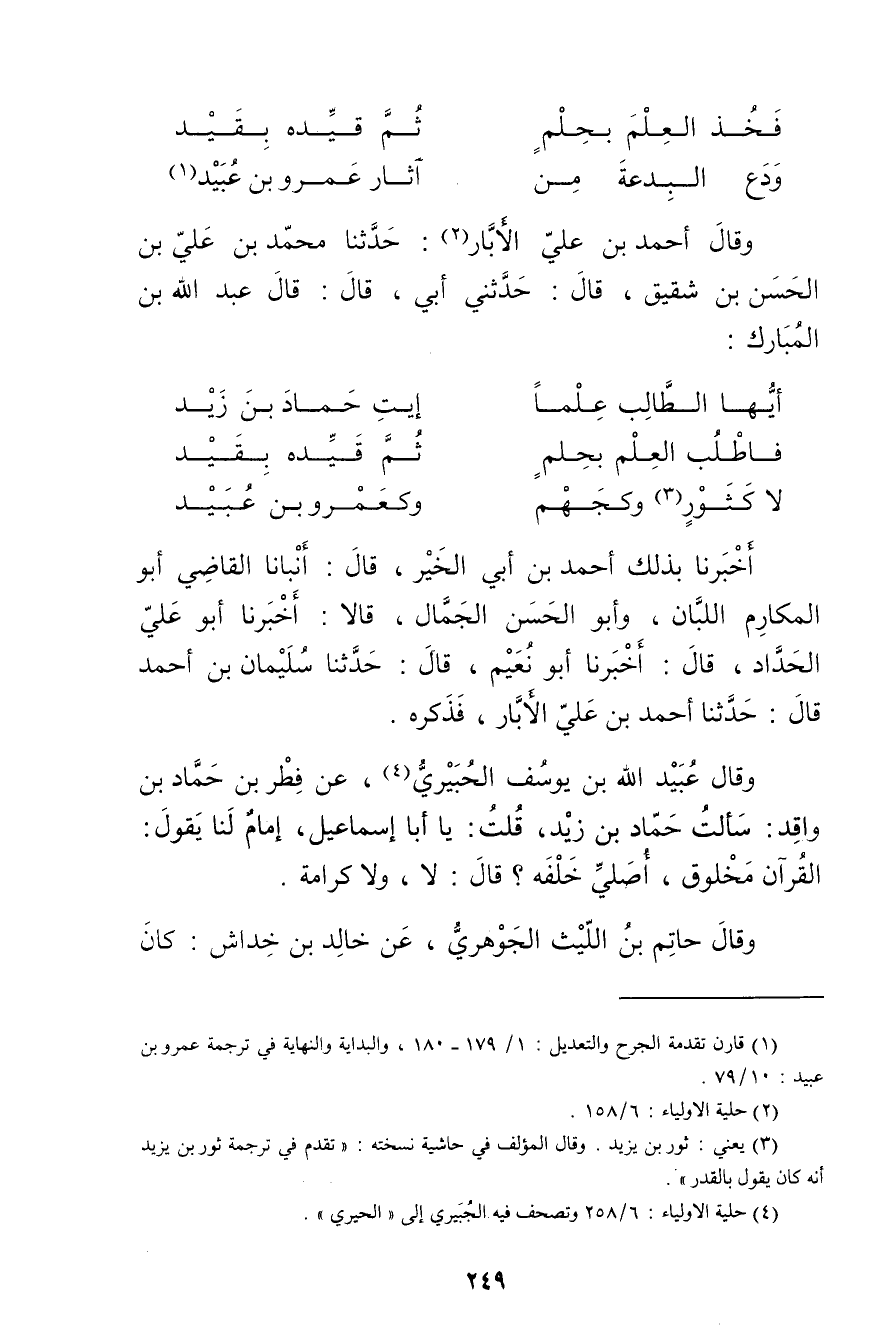 فَخُــذ العِلْمَ بحِلْمٍ ثُــمَّ قيِّــده بِــقَــيْــد
وَدَع البِدعةَ مِــن آثــار عَمــرو بن عُبَيْد(١)
وقالَ أحمد بن عليّ الأَبَّار(٢) : حَدَّثنا محمّد بن عَليّ بن
الحَسَن بن شقيق ، قالَ : حَدَّثني أبي ، قالَ : قالَ عبد الله بن
المُبَارك :
أيُّهــا الطَّالِب عِلْمــاً إيــتِ حَمــادَ بــنَ زَيْــد
فــاطْلُب العِلْم بحِلمٍ ثُــمَّ قَيِّــده بِــقَــيْــد
لا كَثَــوْرٍ(٣) وكــجَــهْم وكــعَمْــرو بــن عُبَيْــد
أَخْبَرنا بذلك أحمد بن أبي الخَيْر ، قالَ : أَنْبانا القاضِي أبو
المكارِم اللبَّان ، وأبو الحَسَن الجَمَّال ، قالا : أَخْبَرنا أبو عَليّ
الحَدَّاد ، قالَ : أَخْبَرنا أبو نُعَيْم ، قالَ : حَدَّثنا سُلَيْمان بن أحمد
قالَ : حَدَّثنا أحمد بن عَليّ الأبَّار ، فَذَكره .
وقال عُبَيْد الله بن يوسُف الجُبَيْريُّ(٤) ، عن فِطْر بن حَمَّاد بن
واقِد: سَألتُ حَمّاد بن زيْد، قُلتُ: يا أبا إسماعيل، إمامٌ لَنا يَقولَ:
القُرآن مَخْلوق ، أُصَليِّ خَلْفَه ؟ قالَ : لا ، ولا كرامة .
وقالَ حاتِم بنُ اللّيْث الجَوْهريُّ ، عَن خالِد بن خِداش : كانَ
(١) قارن تقدمة الجرح والتعديل : ١/ ١٧٩ ـ ١٨٠ ، والبداية والنهاية في ترجمة عمرو بن
عبيد : ٧٩/١٠ .
(٢) حلية الاولياء : ١٥٨/٦ .
(٣) يعني : ثور بن يزيد . وقال المؤلف في حاشية نسخته : « تقدم في ترجمة ثور بن يزيد
أنه كان يقول بالقدر » .
(٤) حلية الاولياء : ٢٥٨/٦ وتصحف فيه الجُبَيري إلى « الحيري » .
٢٤٩